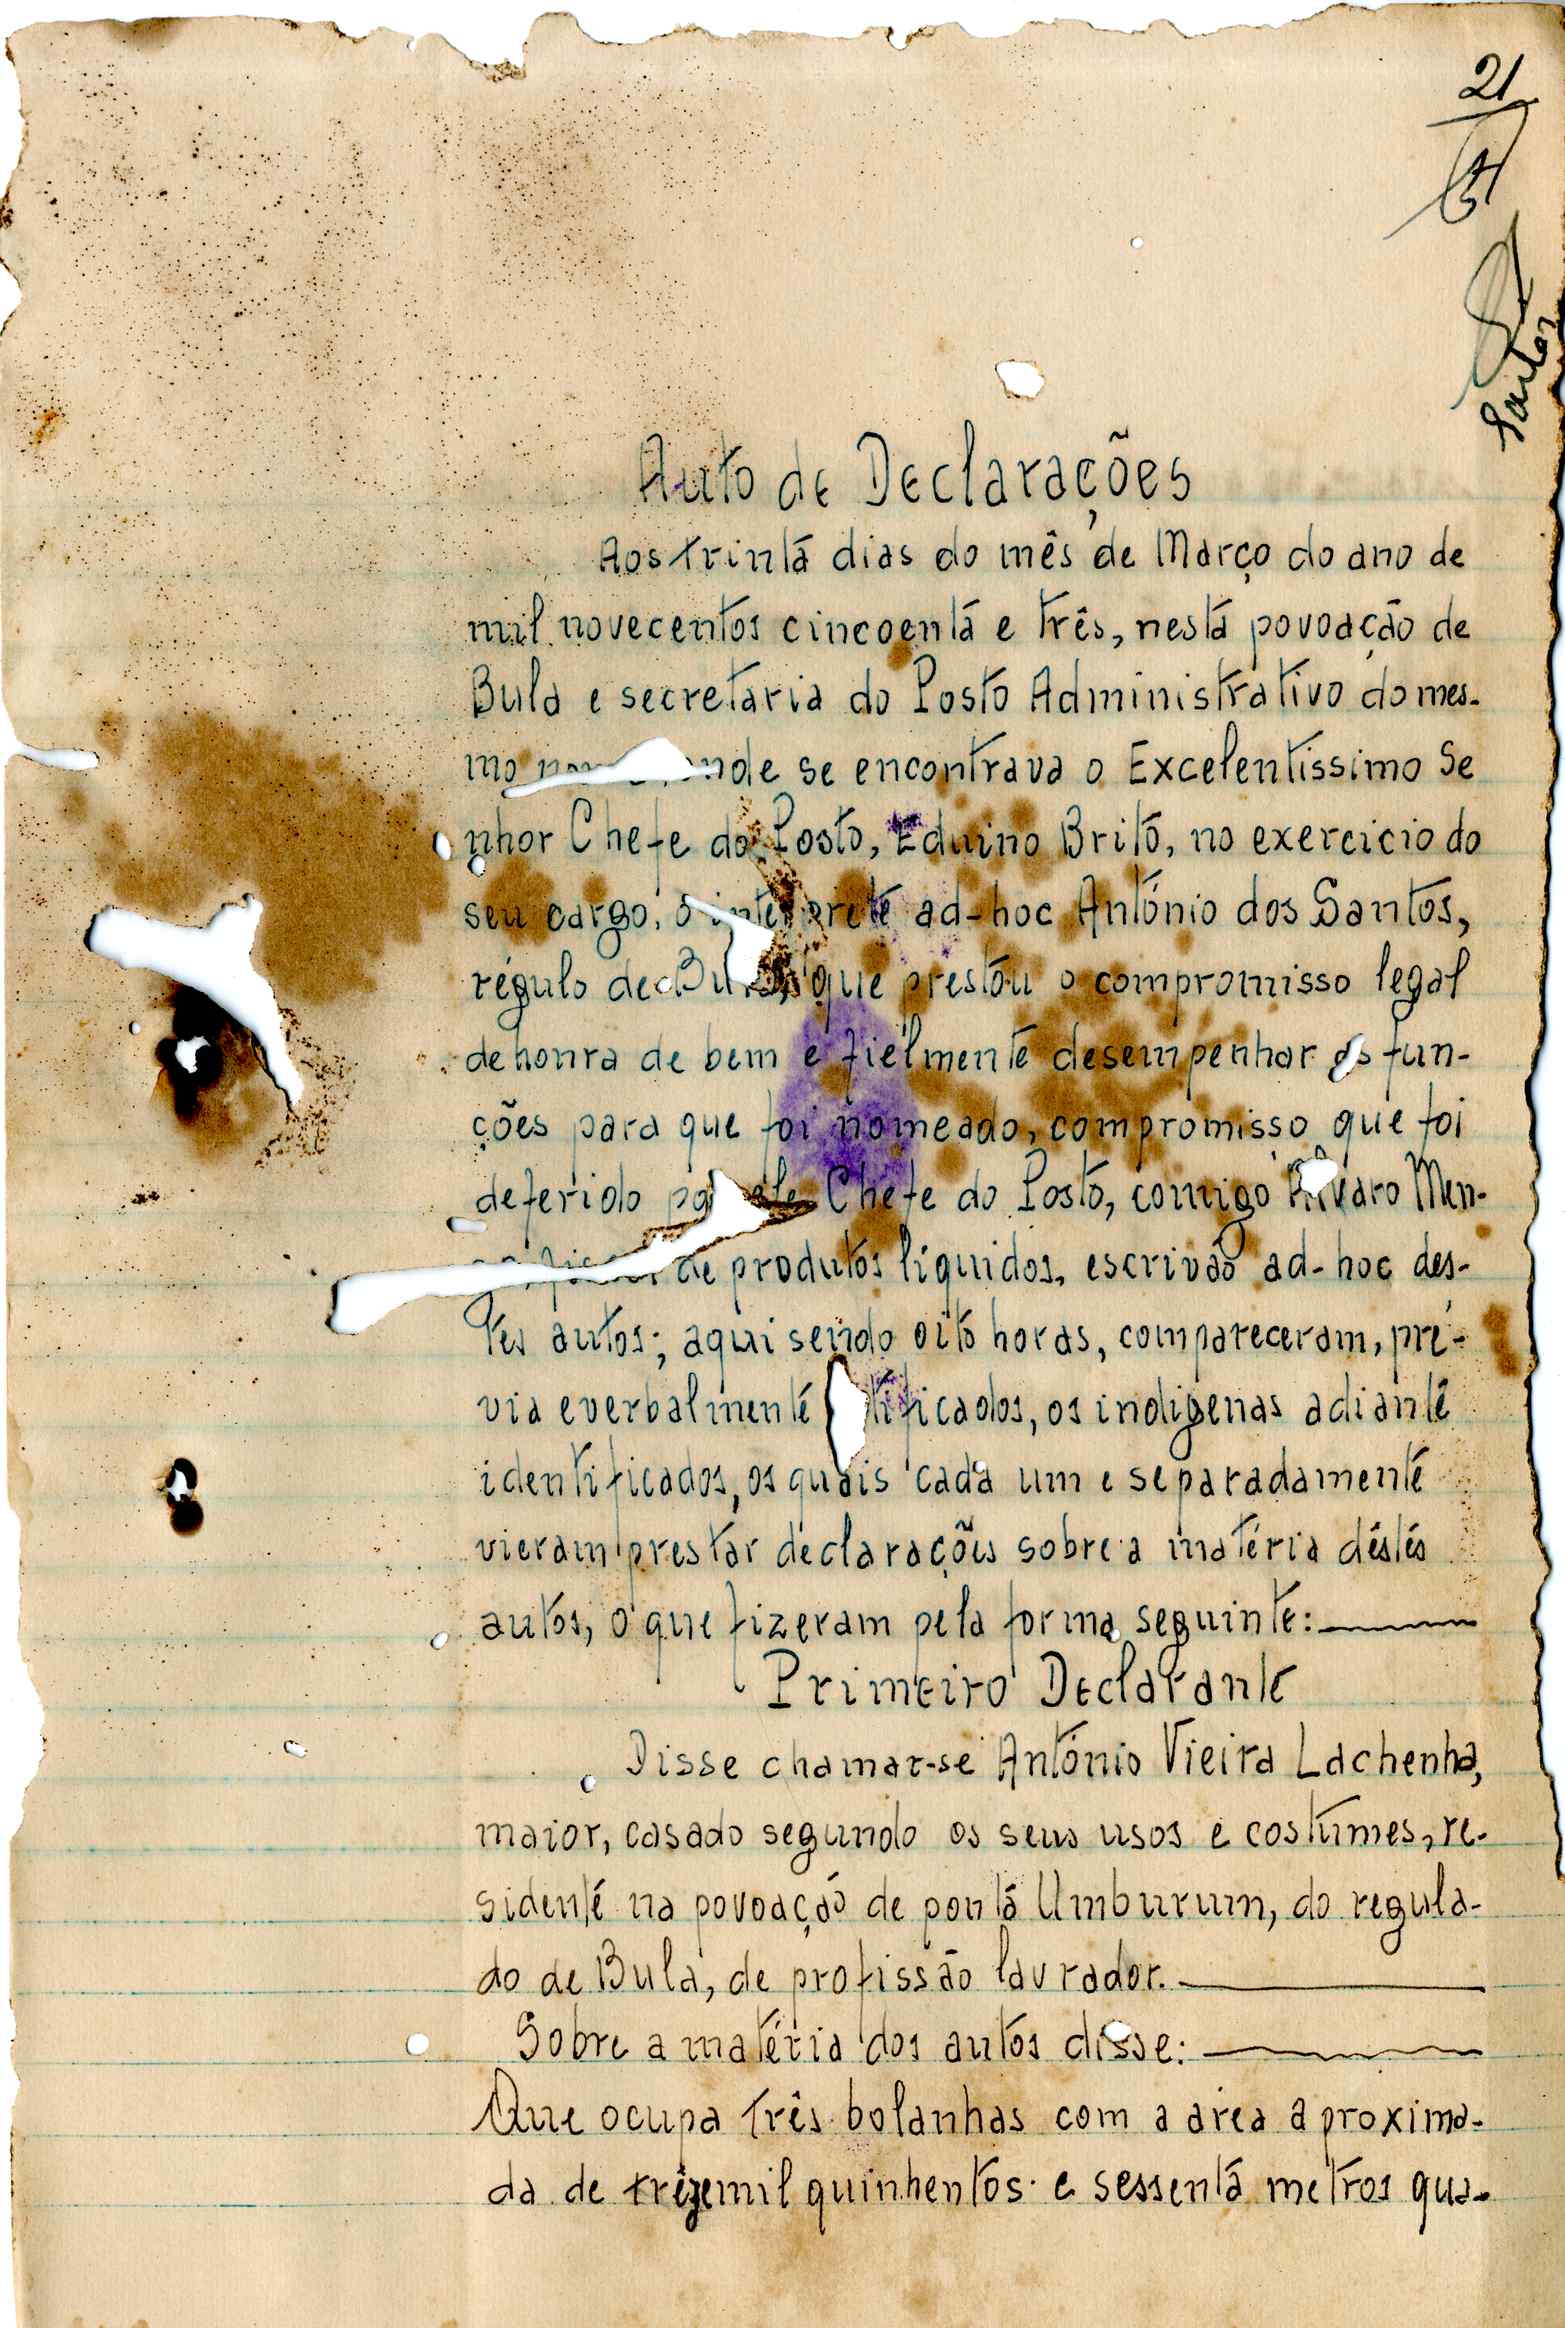 21
Santos
Auto de Declarações
Aos trinta dias do mês de Março do ano de
mil novecentos cincoenta e três, nesta povoação de
Bula e secretaria do Posto Administrativo do mes-
mo onde se encontrava o Excelentissimo Se
nhor Chefe do Posto, Eduino Brito, no exercicio do
seu cargo, o interprete ad-hoc António dos Santos,
régulo de Bula, que prestou o compromisso legal
de honra de bem e fielmente desempenhar as fun-
ções para que foi nomeado, compromisso que foi
deferido por ele Chefe do Posto, comigo Álvaro Men-
de produtos líquidos, escrivão ad-hoc des-
tes autos; aqui sendo oito horas, compareceram, pré-
via e verbalmente tificados, os indigenas adiante
identificados, os quais cada um e separadamente
vieram prestar declarações sobre a matéria dêstes
autos, o que fizeram pela forma seguinte:
Primeiro Declarante
Disse chamar-se António Vieira Lachenha,
maior, casado segundo os seus usos e costumes, re-
sidente na povoação de ponta Umburum, do regula-
do de Bula, de profissão lavrador.
Sobre a matéria dos autos disse:
Que ocupa três bolanhas com a área aproxima-
da de trêzemil quinhentos e sessenta metros qua-